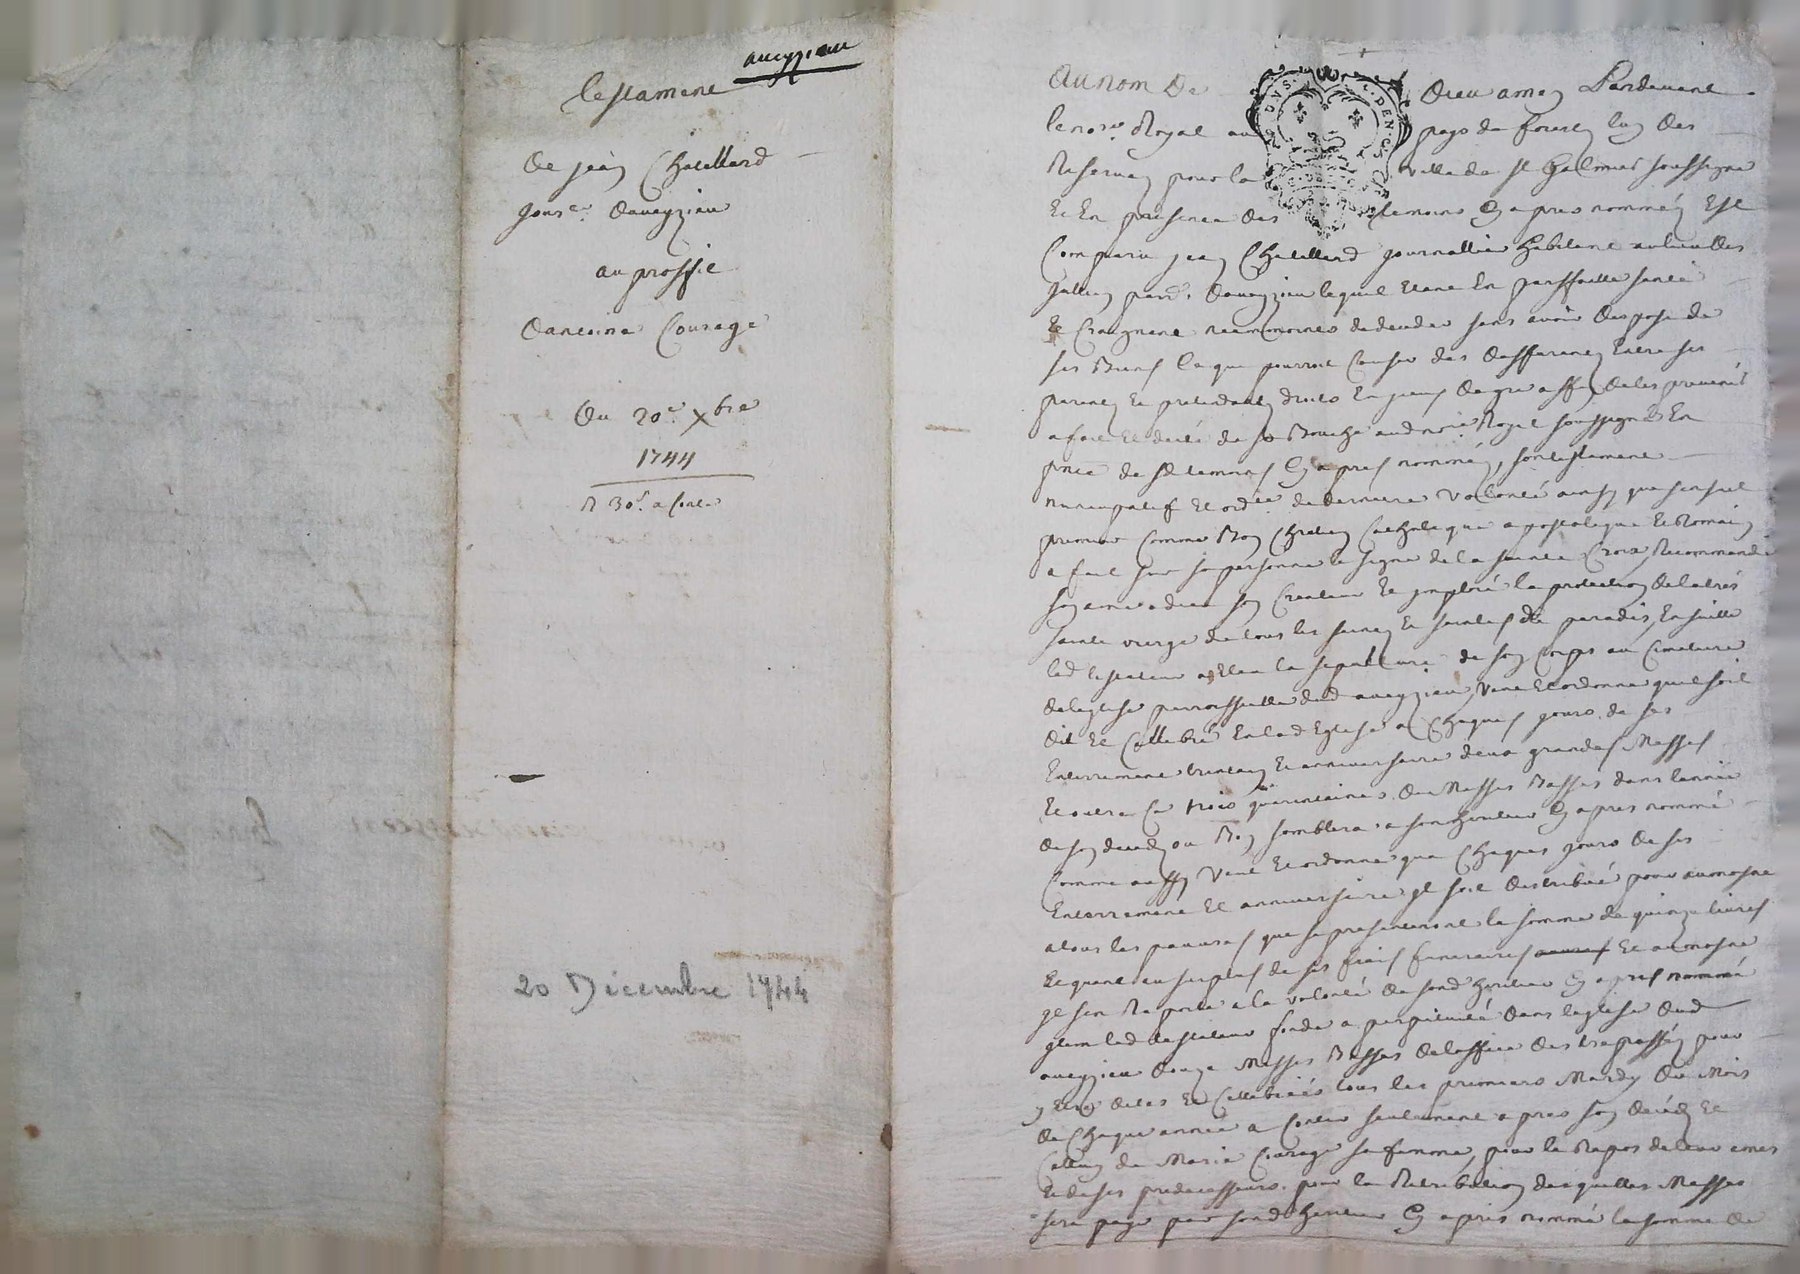 aveyzieu
Testament
De jean Chatellard
Jour.er Daveyzieu
au proffit
Dantoine Courage
Du 20.e Xbre
1744
R 30.s a Conte
20 Décembre 1744
Au nom De Dieu amen Pardevant
le no.re Royal au pays de forest lun des
Reservez pour la ville de st Galmier soussigné
Et En presence des temoins Cy apres nommez Est
Comparu jean Chatellard journallier habitant au lieu des
par.se Daveyzieu lequel Etant En parffaitte santé
Et Craignant neanmoins dedeceder sans avoir dispose de
ses Biens Ce que pourroit Causer des differents Entre ses
parents Et pretendants droits En jceux De gré affin De les prevenir
a fait Et dicté de sa Bouche aud no.re Royal soussigné En
p.nce de sd temoins Cy apres nommez, son testament
nuncupatif Et ord.ce de derniere volonté ainsy que sensuit
premier Comme Bon Chretien Catholique apostolique Et Romain
a fait sur sa personne le signe de la sainte Croix, Recommandé
son ame a dieu son Createur Et jmploré la protection De la très
sainte vierge de tous les saints Et saintes de paradis, En suitte
led testateur a Eleu la sepulture de son Corps au Cimetiere
de leglise parroissialle dud aveyzieu, veut Et ordonne quil soit
dit Et Cellebré En lad Eglise a Chaques jours de ses
Enterrement trentain Et anniversaire deux grandes Messes
Et outre Ce trois quarantaines De Messes Basses dans lannée
de son decedz ou Bon semblera a son heritier Cy apres nommé
Comme aussy veut Et ordonne que Chaques jours De ses
Enterrement Et anniversaire jl soit distribué pour aumosne
a tous les pauvres que se presenteront la somme de quinze livres
Et quant au surplus de ses frais funeraires Et aumosne
jl sen Raporte a la volonté de sond heritier Cy apres nommé
jtem led testateur fonde a perpetuité dans leglise dud
aveyzieu douze Messes Basses de loffice des trepassez pour
y Etre dites Et Cellebrées tous les premiers Mardy du Mois
de Chaque année a Conter seulement apres son decedz Et
Celluy de Marie Courage sa femme, pour le Repos de leur ames
Et de ses predecesseurs, pour la Retribution desquelles Messes
sera payé par sond heritier Cy apres nommé la somme de